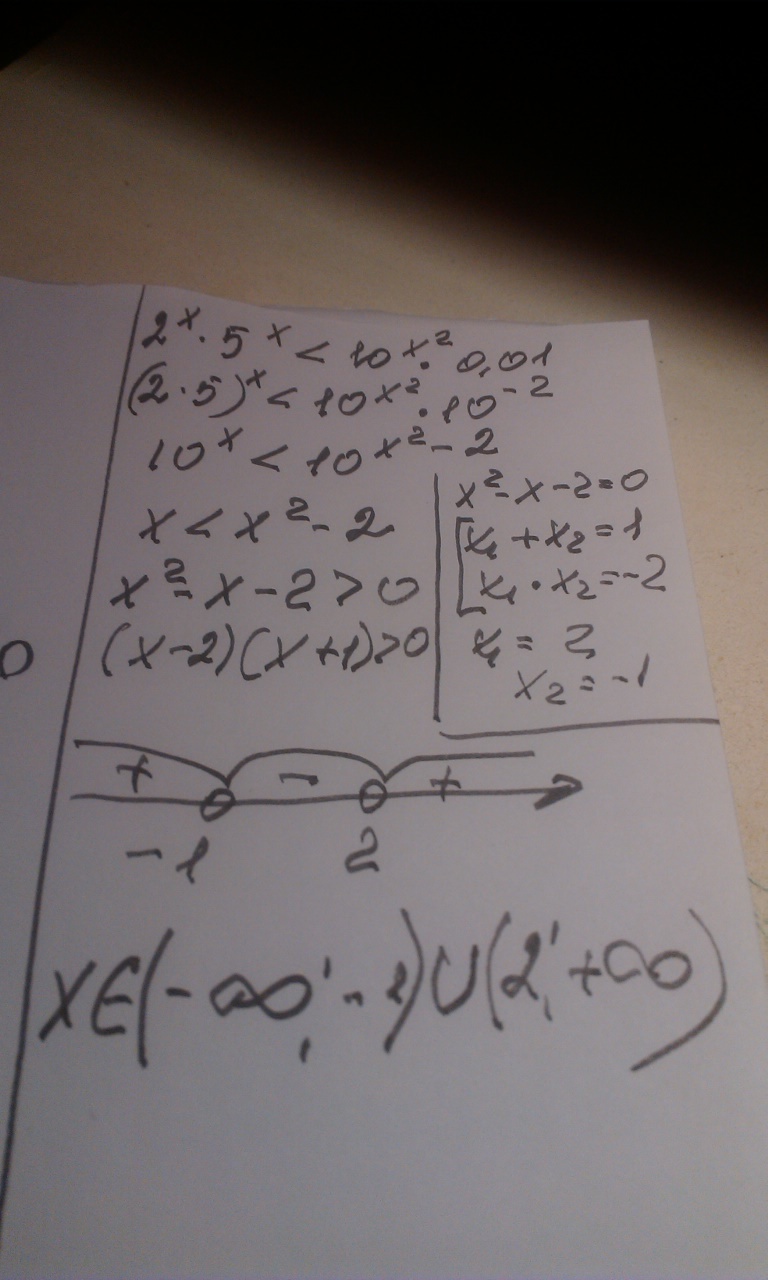 2^x · 5^x < 10^x² · 0,01
(2 · 5)^x < 10^x² · 10^-2
10^x < 10^x²-2
x < x² - 2
x² - x - 2 > 0
(x-2)(x+1)>0
x² - x - 2 = 0
[x₁ + x₂ = 1
x₁ · x₂ = -2
x₁ = 2
x₂ = -1
0
+ - +
-1 2
x∈(-∞; -1)∪(2; +∞)